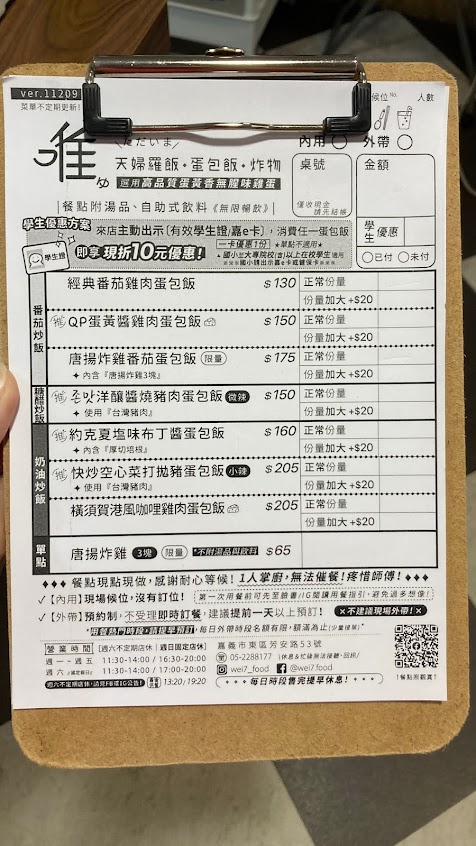 ver.11209
菜單不定期更新!
候位 No.
人數
唯
ゆ
\ただいま/
天婦羅飯・蛋包飯・炸物
選用高品質蛋黃香無腥味雞蛋
|餐點附湯品、自助式飲料《無限暢飲》|
內用 ○ 外帶 ○
桌號
金額
僅收現金
請先結帳
學生優惠
○已付 ○未付
學生優惠方案
學生證
來店主動出示〔有效學生證/嘉e卡〕,消費任一蛋包飯
即享現折10元優惠!
一卡優惠1份 ★單點不適用★
▲國小至大專院校(含)以上在校學生適用
番茄炒飯
經典番茄雞肉蛋包飯 $130 正常份量
份量加大+$20
QP蛋黃醬雞肉蛋包飯 $150 正常份量
份量加大+$20
唐揚炸雞番茄蛋包飯 限量 $175 正常份量
✦內含『唐揚炸雞3塊』 份量加大+$20
존맛洋釀醬燒豬肉蛋包飯 微辣 $150 正常份量
✦使用『台灣豬肉』 份量加大+$20
奶油炒飯
約克夏塩味布丁醬蛋包飯 $160 正常份量
✦內含『厚切培根』 份量加大+$20
快炒空心菜打拋豬蛋包飯 小辣 $205 正常份量
✦使用『台灣豬肉』 份量加大+$20
橫須賀港風咖哩雞肉蛋包飯 $205 正常份量
份量加大+$20
單點
唐揚炸雞 3塊 限量 *不附湯品與飲料 $65
◆◆◆ 餐點現點現做,感謝耐心等候!1人掌廚,無法催餐!疼惜師傅!◆◆◆
✓【內用】現場候位,沒有訂位!
第一次用餐前可先至臉書/IG閱讀用餐指引,避免過多想像!
✓【外帶】預約制,不受理即時訂餐,建議提前一天以上預訂!
×不建議現場外帶!×
每日外帶時段名額有限,額滿為止(少量接單)
營業時間 |週六不定期店休|週日固定店休|
週一-週五 11:30-14:00 / 16:30-20:00
週六 11:30-14:00 / 17:00-20:00
週六不定期店休,請見FB或IG公告
13:20 / 19:20
嘉義市東區芳安路53號
05-2288177
wei7_food @wei7.food
✦✦✦每日時段售完提早休息!✦✦✦
!餐點照觀賞!